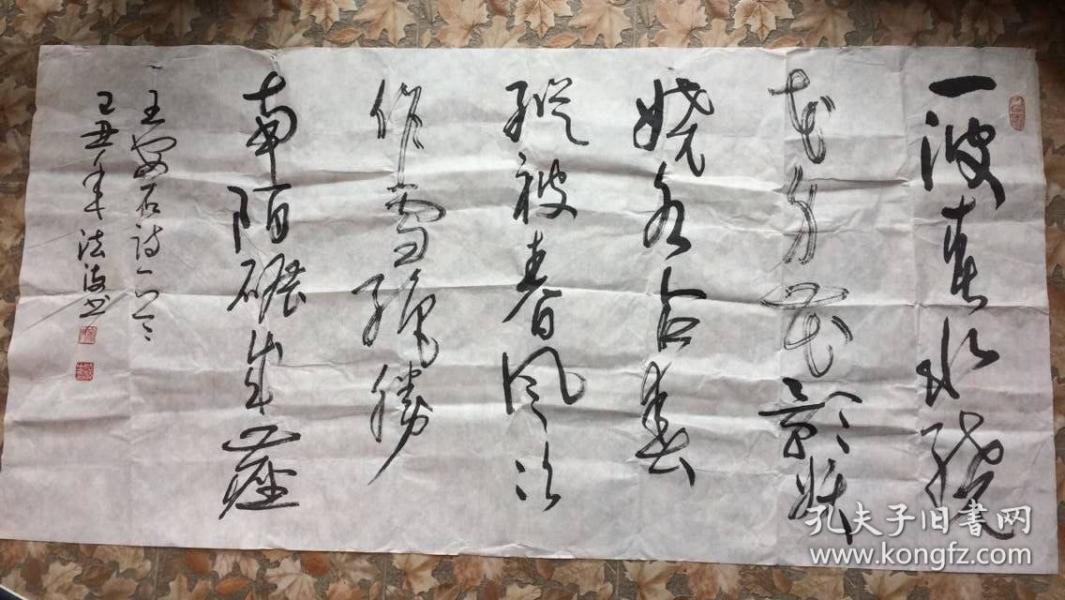 一波春水繞
花身花影妖
娆各占春
縱被春风吹
作雪絕勝
南陌碾成塵
王安石诗一首
己丑年 法 书
孔夫子旧书网
www.kongfz.com